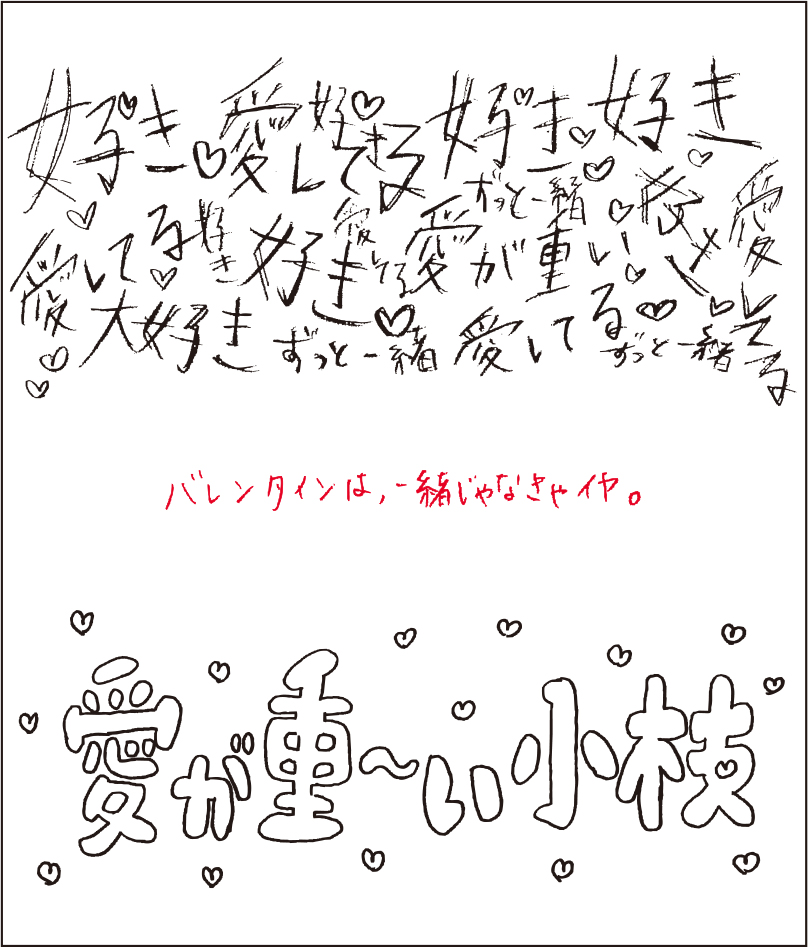 好き♡愛してる好き♡好き♡好き
ずっと一緒
愛してる好き好き愛してる愛が重い♡愛してる
大好きずっと一緒愛してるずっと一緒
バレンタインは、一緒じゃなきゃイヤ。
愛が重〜い小枝